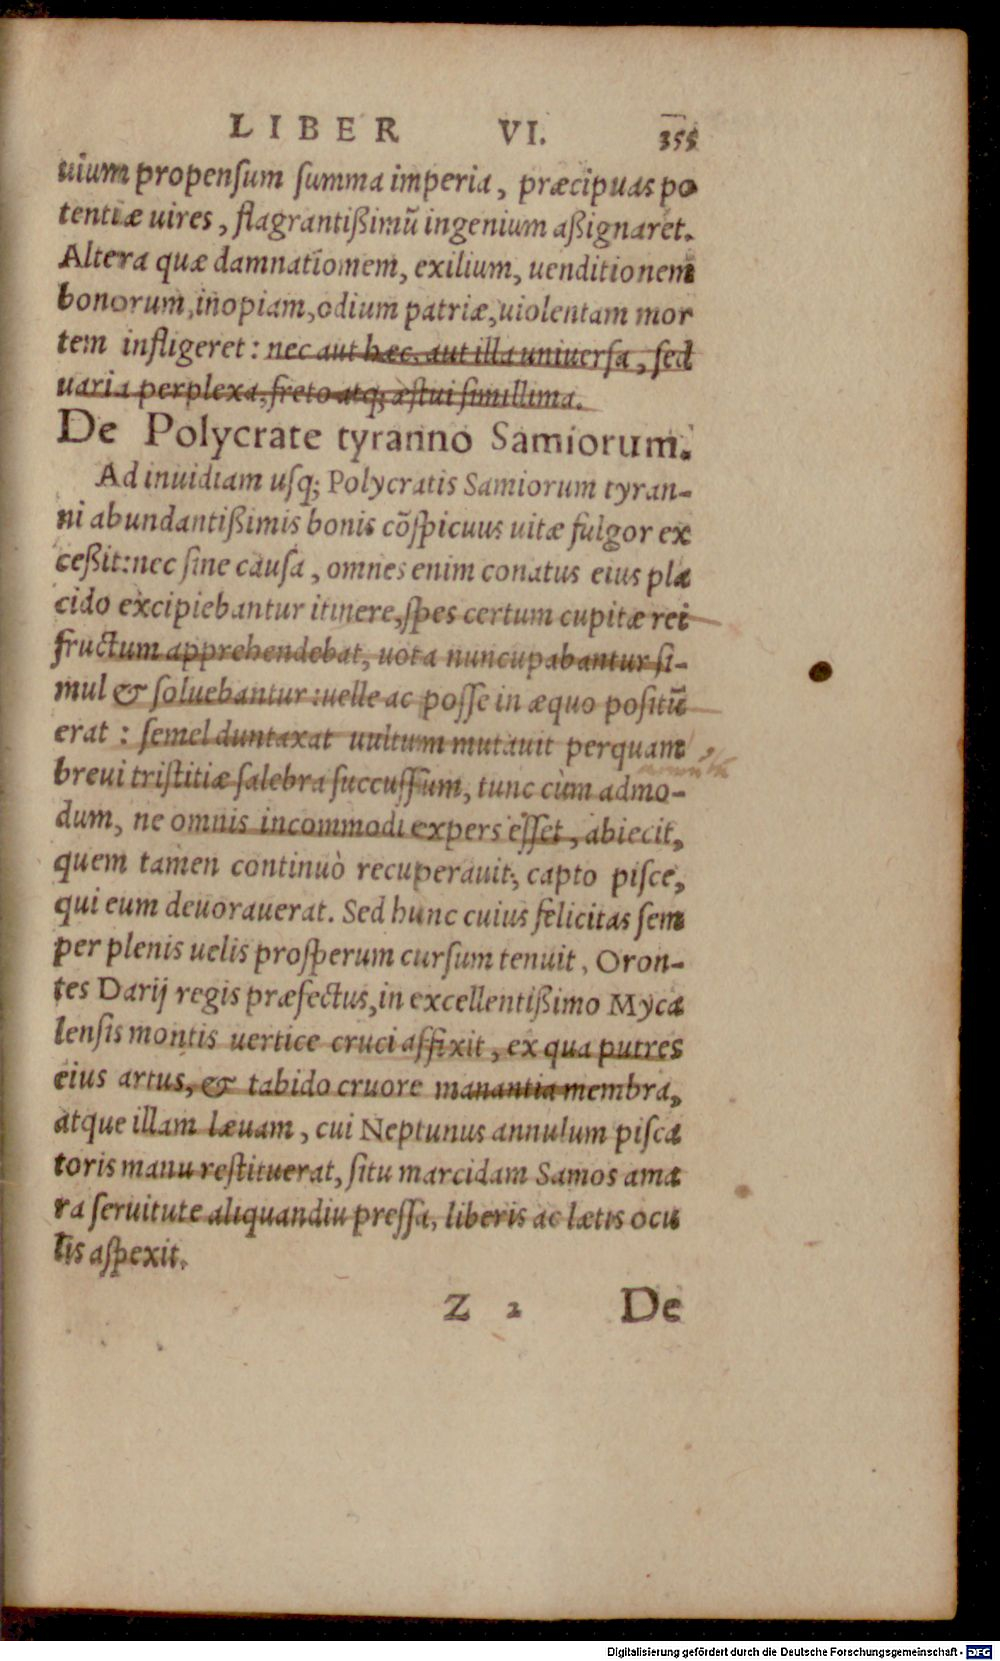 LIBER VI. 355
uium propensum summa imperia, præcipuas po
tentiæ uires, flagrantißimũ ingenium aßignaret.
Altera quæ damnationem, exilium, uenditionem
bonorum, inopiam, odium patriæ, uiolentam mor
tem infligeret: nec aut hæc, aut illa uniuersa, sed
uaria perplexa, freto atq; æstui simillima.
De Polycrate tyranno Samiorum.
Ad inuidiam usq; Polycratis Samiorum tyran-
ni abundantißimis bonis cõspicuus uitæ fulgor ex
ceßit: nec sine causa, omnes enim conatus eius pla
cido excipiebantur itinere, spes certum cupitæ rei
fructum apprehendebat, uota nuncupabantur si-
mul & soluebantur: uelle ac posse in æquo positũ
erat: semel duntaxat uultum mutauit perquam
breui tristitiæ salebra succussum, tunc cùm admo-
dum, ne omnis incommodi expers esset, abiecit,
quem tamen continuò recuperauit, capto pisce,
qui eum deuorauerat. Sed hunc cuius felicitas sem
per plenis uelis prosperum cursum tenuit, Oron-
tes Darij regis præfectus, in excellentißimo Myca
lensis montis uertice cruci affixit, ex qua putres
eius artus, & tabido cruore manantia membra,
atque illam læuam, cui Neptunus annulum pisca
toris manu restituerat, situ marcidam Samos ama
ra seruitute aliquandiu pressa, liberis ac lætis ocu
lis aspexit.
Z 2 De
Digitalisierung gefördert durch die Deutsche Forschungsgemeinschaft - DFG